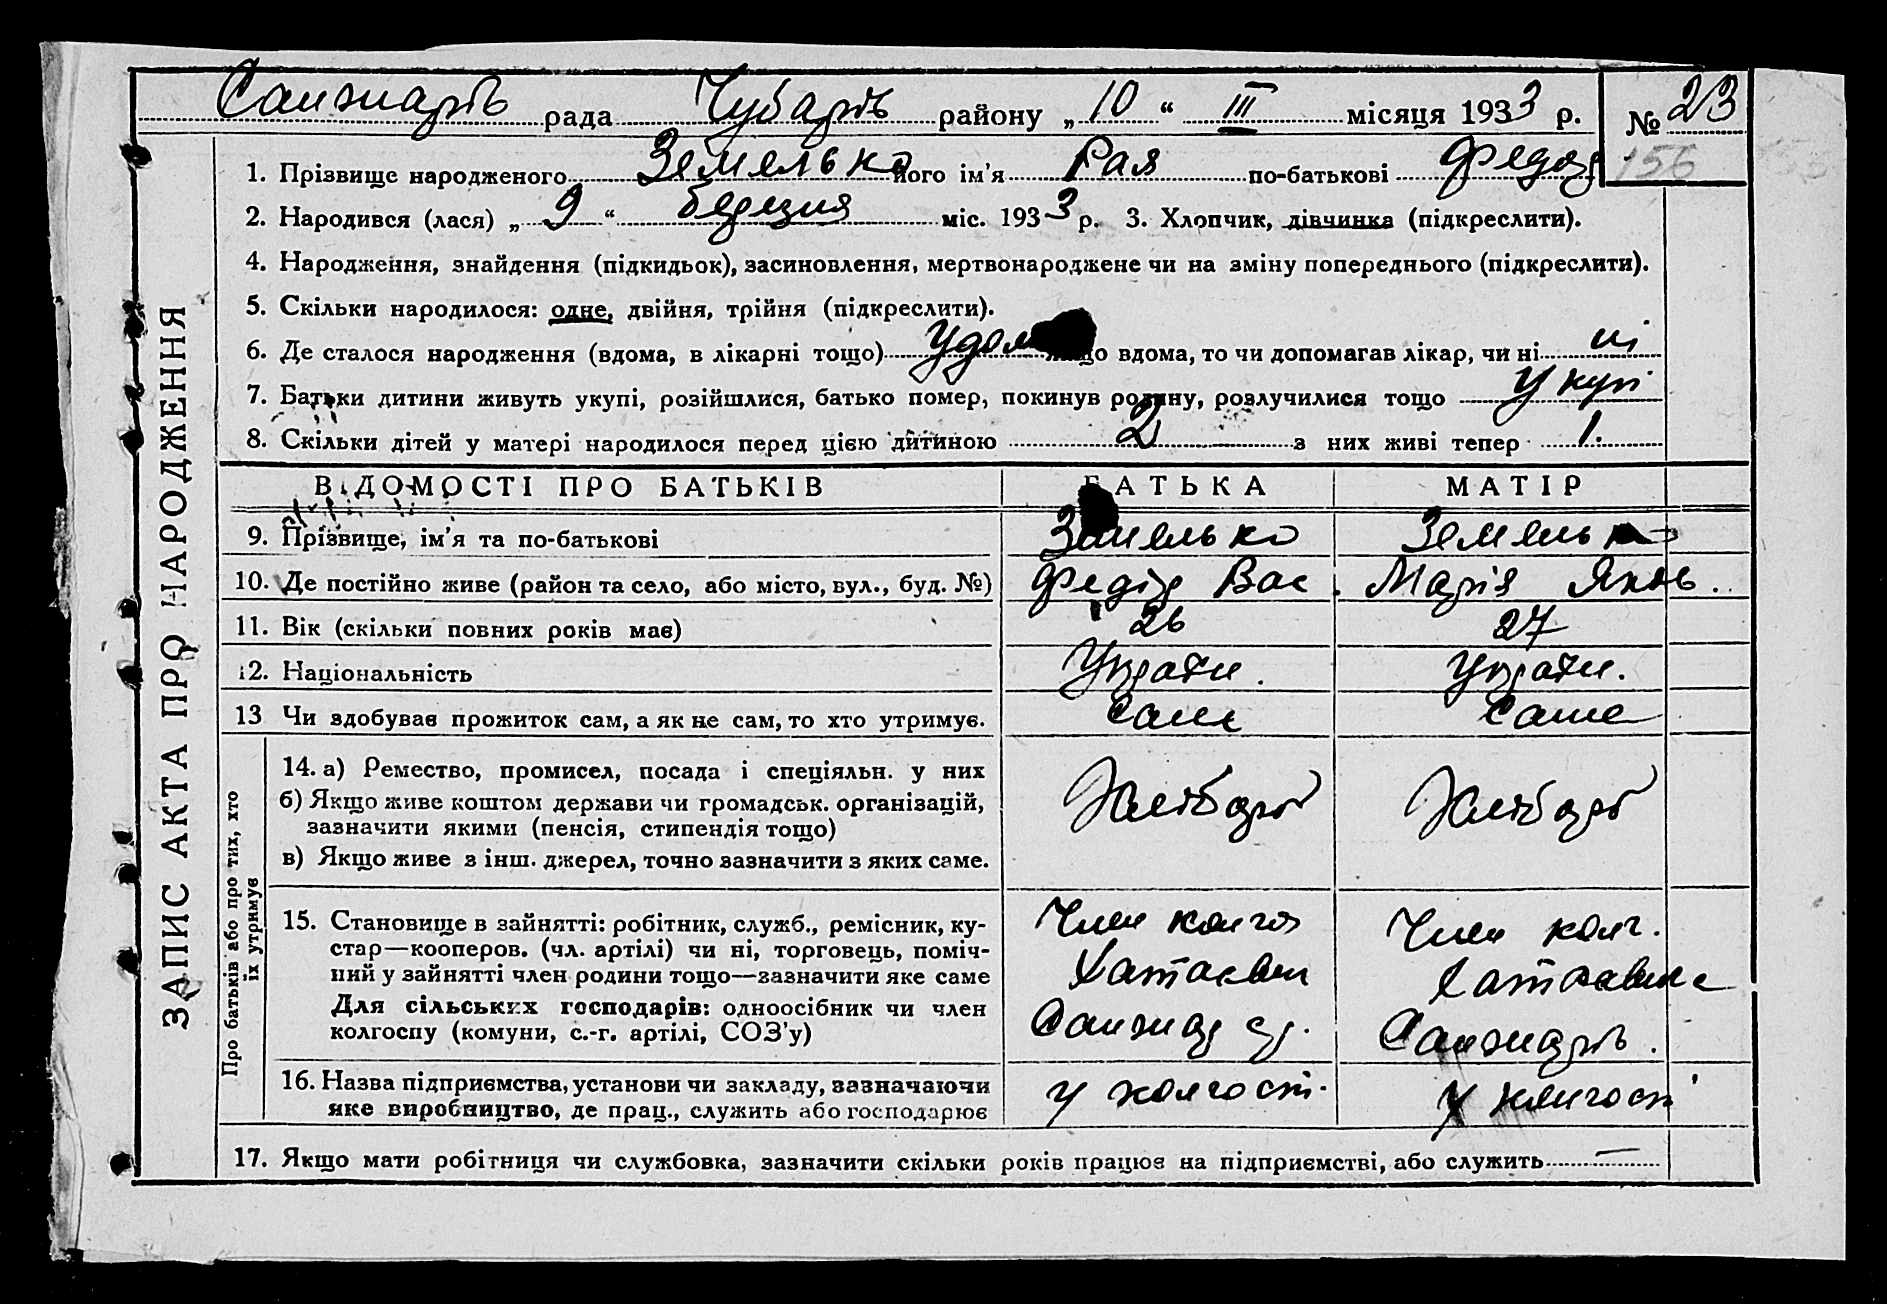 Санжарів рада Чубарів району „ 10 “ III місяця 1933 р. № 23
156
1. Прізвище народженого Земелько його ім'я Рая по-батькові Федор
2. Народився (лася) „ 9 “ березня міс. 1933 р. 3. Хлопчик, дівчинка (підкреслити).
4. Народження, знайдення (підкидьок), засиновлення, мертвонароджене чи на зміну попереднього (підкреслити).
5. Скільки народилося: одне, двійня, трійня (підкреслити).
6. Де сталося народження (вдома, в лікарні тощо) Удома якщо вдома, то чи допомагав лікар, чи ні ні
7. Батьки дитини живуть укупі, розійшлися, батько помер, покинув родину, розлучилися тощо укупі
8. Скільки дітей у матері народилося перед цією дитиною 2 з них живі тепер 1.
ВІДОМОСТІ ПРО БАТЬКІВ БАТЬКА МАТІР
9. Прізвище, ім'я та по-батькові Земелько Земелько
10. Де постійно живе (район та село, або місто, вул., буд. №) Федір Вас. Марія Яків.
11. Вік (скільки повних років має) 26 27
12. Національність Україн. Україн.
13 Чи здобуває прожиток сам, а як не сам, то хто утримує. Саме Саме
14. а) Ремество, промисел, посада і спеціяльн. у них
б) Якщо живе коштом держави чи громадськ. організацій,
зазначити якими (пенсія, стипендія тощо)
в) Якщо живе з інш. джерел, точно зазначити з яких саме.
Хлібороб Хлібороб
15. Становище в зайнятті: робітник, служб., ремісник, ку-
стар—кооперов. (чл. артілі) чи ні, торговець, поміч-
ний у зайнятті член родини тощо—зазначити яке саме
Для сільських господарів: одноосібник чи член
колгоспу (комуни, с.-г. артілі, СОЗ'у)
Член колгос Член колг.
Санжар Санжарів.
16. Назва підприємства, установи чи закладу, зазначаючи
яке виробництво, де прац., служить або господарює
у колгосп. у колгосп
17. Якщо мати робітниця чи службовка, зазначити скільки років працює на підприємстві, або служить —
ЗАПИС АКТА ПРО НАРОДЖЕННЯ
Про батьків або про тих, хто
їх утримує